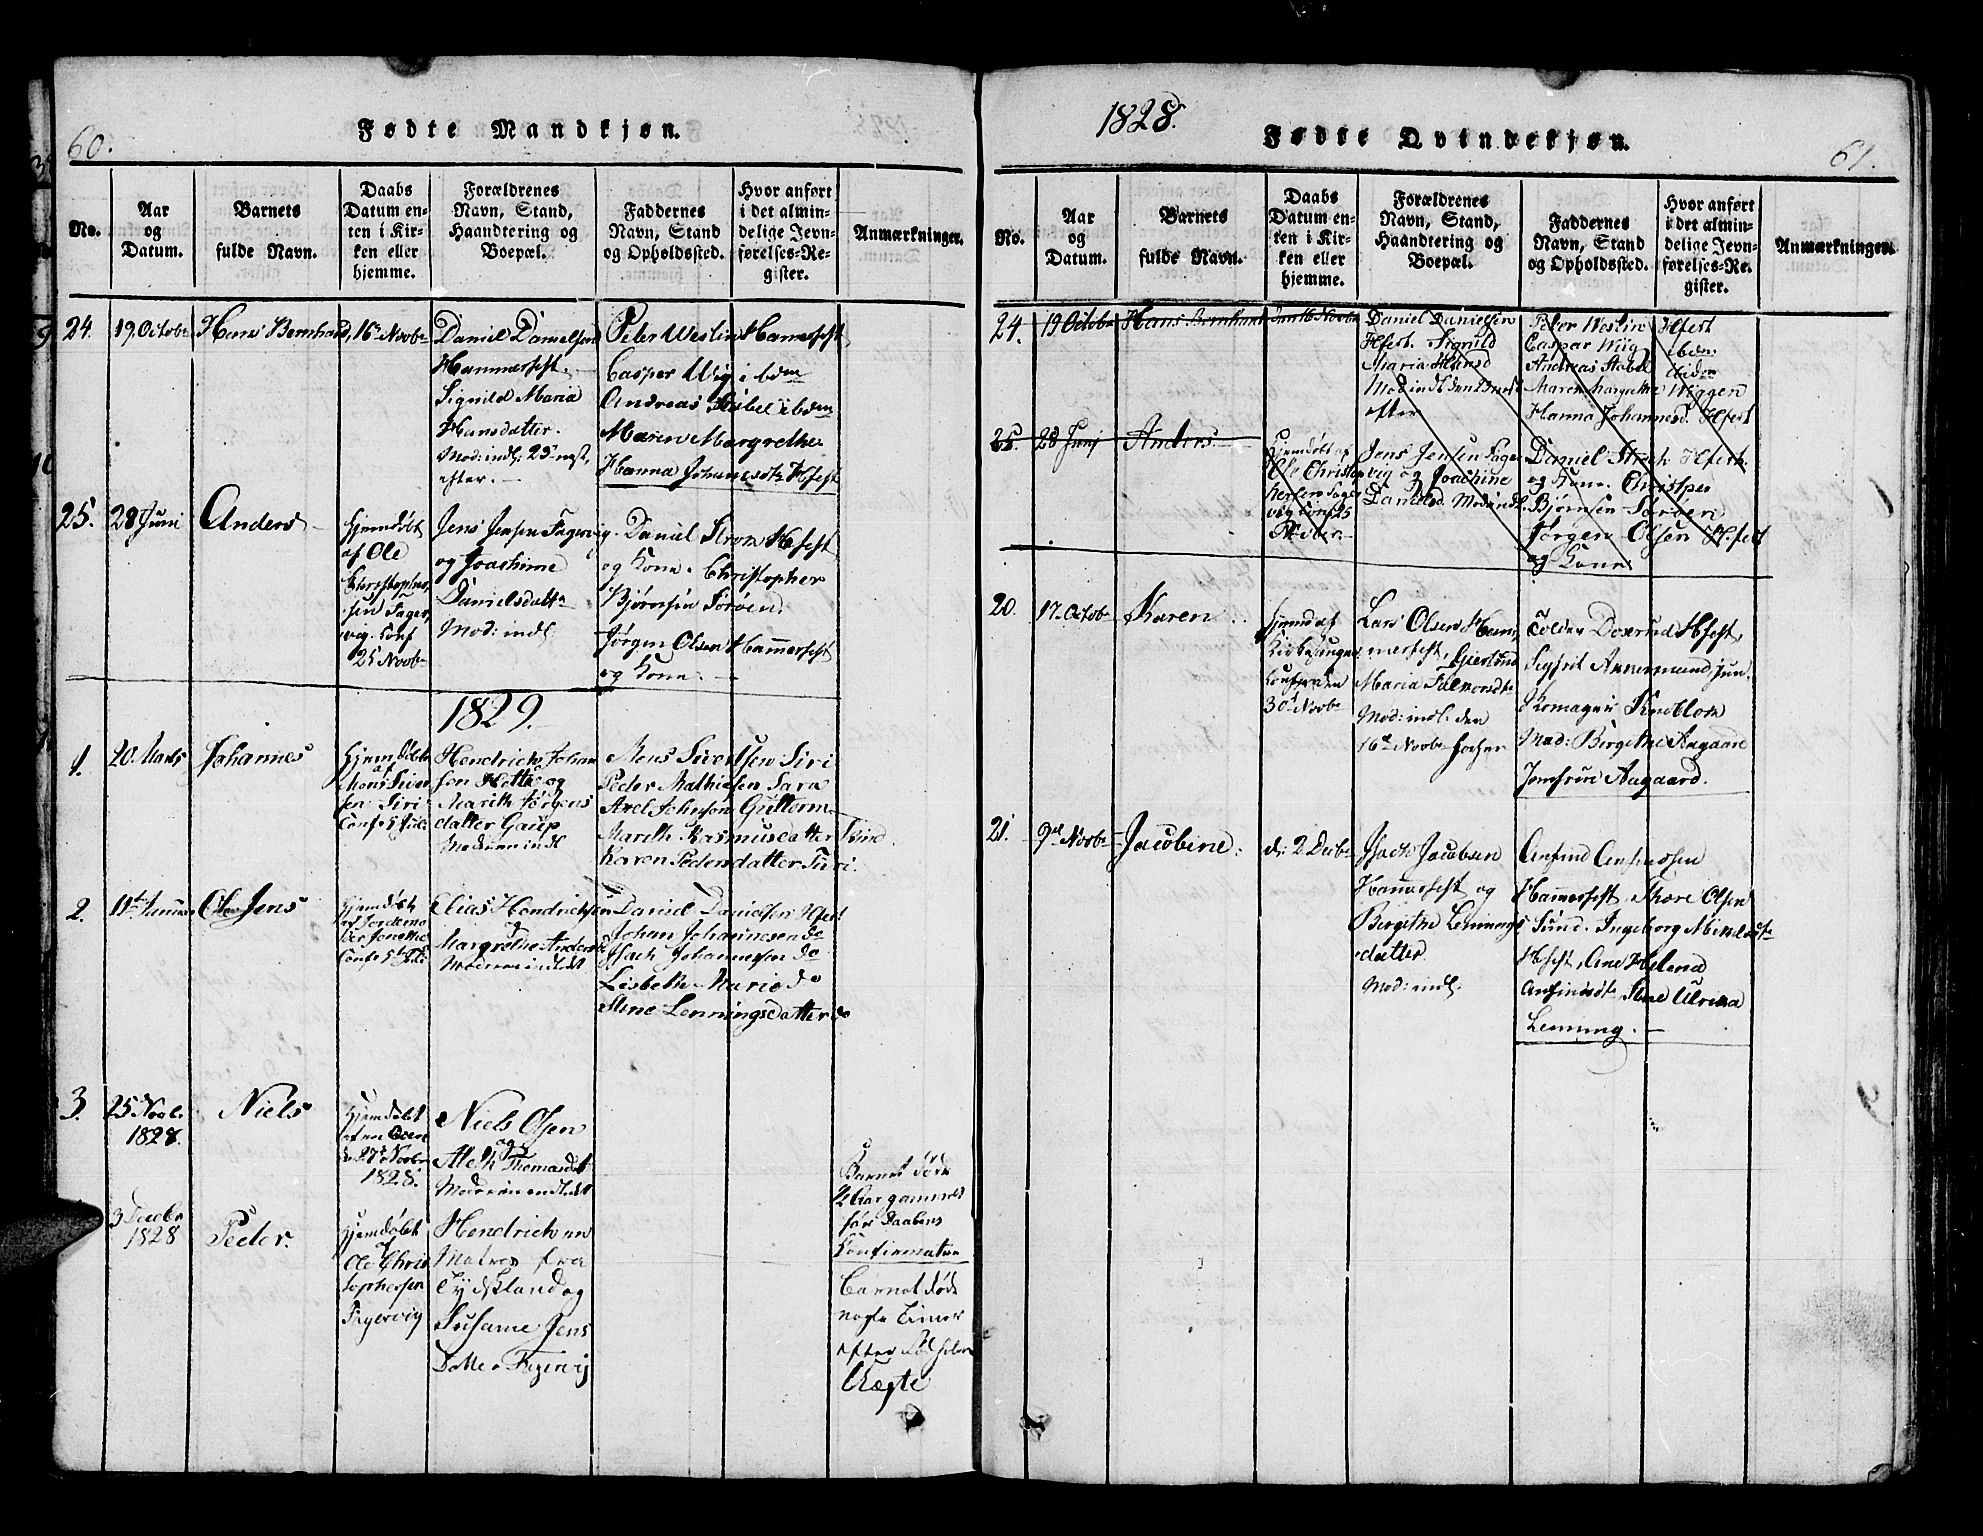 60.
Fødte Mandkjøn.
No.
Aar
og
Datum.
Barnets
fulde Navn.
Daabs
Datum en-
ten i Kir-
ken eller
hjemme.
Forældrenes
Navn, Stand,
Haandtering og
Boepæl.
Faddernes
Navn, Stand
og Opholdssted.
Hvor anført
i det almin-
delige Jevn-
førelses-Re-
gister.
Anmærkninger.
24.
19. Octobr
Hans Bernhard,
16 Novbr
Daniel Danielsen
Hammerfest.
Sigrild Maria
Hansdatter.
Mod: indl: 23
efter.
Peter Weslin Hamerfest
Casper Wig ibdm
Andreas Stabel ibdm
Maren Margrethe
Hanna Johanesdtr Hfest
25.
28 Juni
Anders
Hjemdøbt
af Ole
Christopher
sen Fager
vig. Conf
25 Novbr
Jens Jensen Fagervig.
og Joachime
Danielsdattr
Mod: indl.
Daniel Strom Hfest
og Kone. Christopher
Bjørnsen Sørøen.
Jørgen Olsen Hammerfest
og Kone.
1829.
1.
20. Marts
Johannes
Hjemdøbt
af
Mons Siver
sen Siri
Conf 5 Juli
Hendrich Johan
sen Hotte og
Marith Jørgens
datter Gaup
Moderen indl
Mons Sivertsen Siri
Peder Mathiesen Sara
Axel Johnsen Guttorm
Marith Rasmusdatter
Karen Pedersdatter Siri.
2.
11te Januar
Ole Jens
Hjemdøbt
af Jordemo
der
Conf 5te Juli
Elias Hendrichsen
og
Margrethe Anders
Moderen indledt
Daniel Danielsen Hfest
Johan Johannesen do
Isach Johannesen do
Lisbeth Marie do
Stine Lenningsdatter do
3.
25 Novb.
1828.
Niels
Hjemdøbt
af en
d. 27 Novbr
1828.
Niels Olsen
og
Aleth Thomasdtr
Moderen indledt
Barnet døde
2 Aar gammel
før Daabens
Confirmation
3 Decbr
1828
Peder.
Hjemdøbt
af
Ole Chris
topherson
Fagervig
Hendrich en
Matros fra
Tydskland og
Susanne Jens
Datter Fagervig
Barnet døde
nogle Timer
efter Fødselen
Uægte
1828.
Fødte Qvindekjøn.
61.
No.
Aar
og
Datum.
Barnets
fulde Navn.
Daabs
Datum en-
ten i Kir-
ken eller
hjemme.
Forældrenes
Navn, Stand,
Haandtering og
Boepæl.
Faddernes
Navn, Stand
og Opholdssted.
Hvor anført
i det almin-
delige Jevn-
førelses-Re-
gister.
Anmærkninger.
24.
19 Octobr
Hans Bernhard
den 16 Novbr
Daniel Danielsen
Hfest. Sigrild
Maria Hansd
Mod indl den
efter
Peter Weslin Hfest
Caspar Wiig ibdm
Andreas Stabel ibidm
Maren Margrethe Wiggen
Hanna Johannesd. Hfest
25.
28 Junj
Anders
Hjemdøbt af
Ole Christo
phersen Fager
vig Conf 25
Jens Jensen Fager
vig og Joachime
Danielsd. Mod indl.
Daniel Strom Hfest.
og Kone. Christper
Bjørnsen Sørøen
Jørgen Olsen Hfest
og Kone
20.
17. Octobr
Karen
Hjemd af
Kirkesanger
Conf
30 Novbr
Lars Olsen Ham
merfest, Gjertrud
Maria Falkorsdtr
Mod: indl. den
16de Novbr
Tolder Doxrud Hfest,
jun.
Mad: Birgithe Aagaard
Jomfrue Aagaard.
21.
9de Novbr
Jacobine.
d: 2 Decbr
Isach Jacobsen
Hammerfest og
Birgithe Lennings
datter.
Mod: indl.
Anfind Anfindsen
Hammerfest, Thore Olsen
Sund. Ingeborg
Hfest, Ane Helena
Anfindsdtr Stine Ulrica
Lenning.